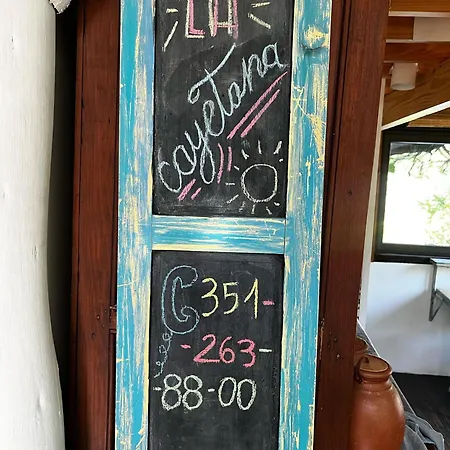 LA
cayetana
351-
-263-
-88-00